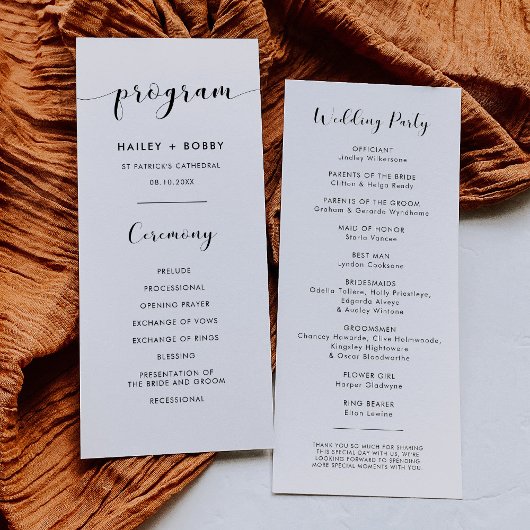 program
HAILEY + BOBBY
ST PATRICK'S CATHEDRAL
08.10.20XX
Ceremony
PRELUDE
PROCESSIONAL
OPENING PRAYER
EXCHANGE OF VOWS
EXCHANGE OF RINGS
BLESSING
PRESENTATION OF
THE BRIDE AND GROOM
RECESSIONAL
Wedding Party
OFFICIANT
Jindley Wilkersone
PARENTS OF THE BRIDE
Clifton & Helga Ready
PARENTS OF THE GROOM
Graham & Gerardo Wyndhame
MAID OF HONOR
Starla Vancee
BEST MAN
Lyndon Cooksone
BRIDESMAIDS
Odella Toliere, Holly Priestleye,
Edgarda Alveye
& Audley Wintone
GROOMSMEN
Chancey Howarde, Clive Holmwoode,
Kingsley Hightowere
& Oscar Bloodwarthe
FLOWER GIRL
Harper Gladwyne
RING BEARER
Elton Lewine
THANK YOU SO MUCH FOR SHARING
THIS SPECIAL DAY WITH US, WE'RE
LOOKING FORWARD TO SPENDING
MORE SPECIAL MOMENTS WITH YOU.